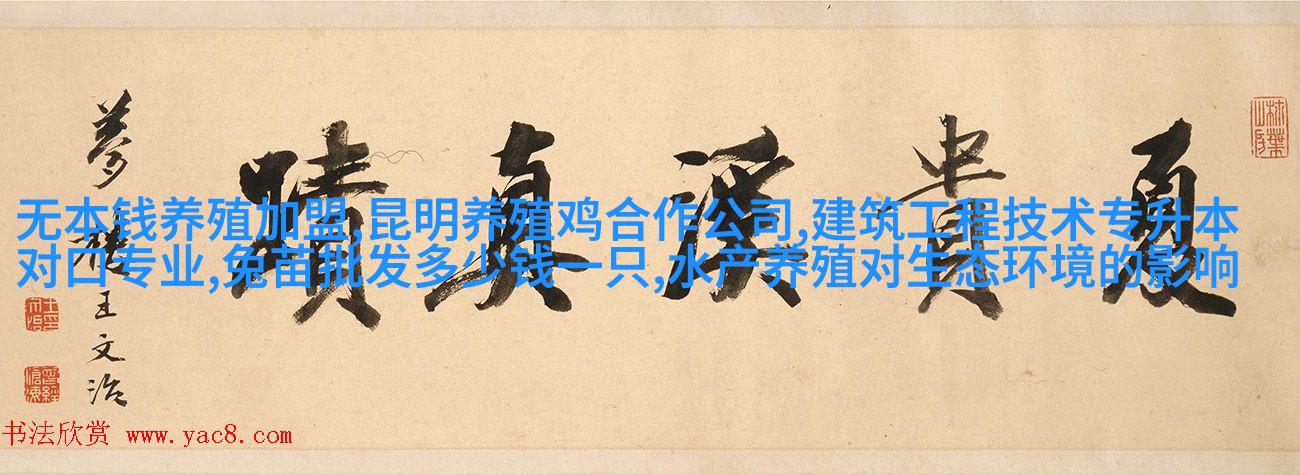 无本钱养殖加盟,昆明养殖鸡合作公司,建筑工程技术专升本
对口专业,兔苗批发多少钱一只,水产养殖对生态环境的影响
柿葉山房
夏貴溪真蹟
夢樓王文治
曾經滄海
书法欣赏 www.yac8.com